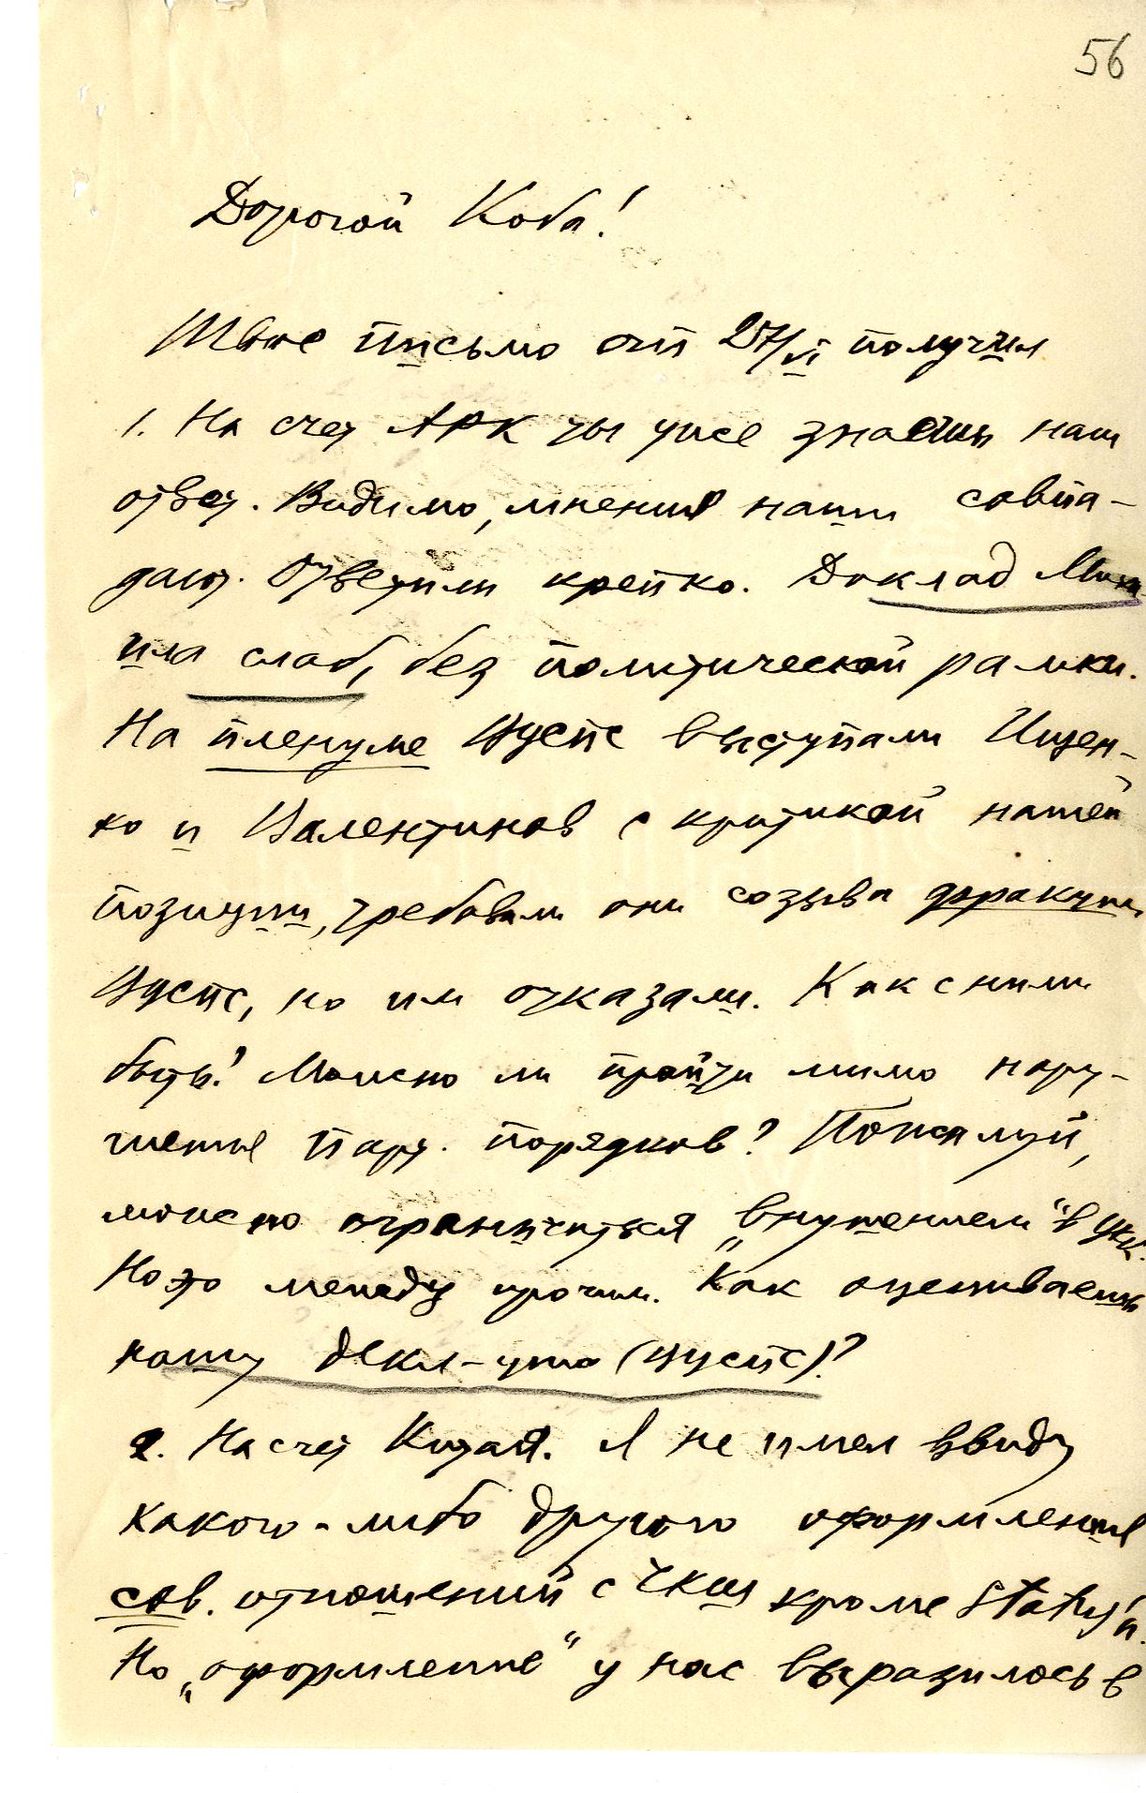 56
Дорогой Коба!
Твое письмо от 27/VI получил
1. На счет АРК ты уже знаешь наш
ответ. Видимо, мнения наши совпа-
дают. Ответили крепко. Доклад Миха-
ила слаб, без политической рамки.
На пленуме ВЦСПС выступали Ищен-
ко и Валентинов с критикой нашей
позиции, требовали они созыва фракции
ВЦСПС, но им отказали. Как с ними
быть? Можно ли пройти мимо нару-
шенья парт. порядков? Пожалуй,
можно ограничиться „внушением“ в ЦКК.
Но это между прочим. Как оцениваешь
нашу декл-цию (ВЦСПС)?
2. На счет Китая. Я не имел ввиду
какого-либо другого оформления
сов. отношений с Чкш кроме Status'а.
Но „оформление“ у нас выразилось в